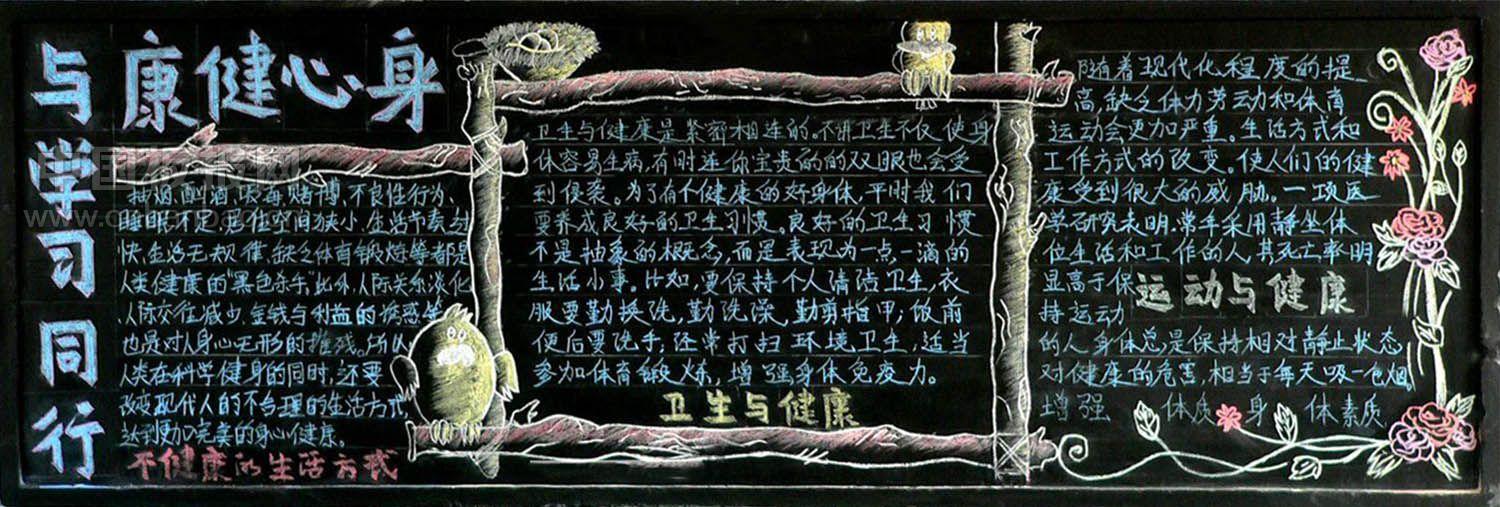 康健心身
与学习同行
抽烟、酗酒、吸毒、赌博、不良性行为、
睡眠不足,居住空间狭小、生活节奏过
快、生活无规律、缺乏体育锻炼等都是
人类健康的“黑色杀手”。此外,人际关系淡化
、人际交往减少、金钱与利益的诱惑等
也是对人身心无形的摧残。所以
人类在科学健身的同时,还要
改变现代人的不合理的生活方式,
达到更加完美的身心健康。
不健康的生活方式
卫生与健康是紧密相连的。不讲卫生不仅使身
体容易生病,有时连你宝贵的的双眼也会受
到侵袭。为了有个健康的好身体,平时我们
要养成良好的卫生习惯。良好的卫生习惯
不是抽象的概念,而是表现为一点一滴的
生活小事。比如,要保持个人清洁卫生,衣
服要勤换洗,勤洗澡,勤剪指甲;饭前
便后要洗手;还常打扫环境卫生,适当
参加体育锻炼,增强身体免疫力。
卫生与健康
随着现代化程度的提
高,缺乏体力劳动和体育
运动会更加严重。生活方式和
工作方式的改变。使人们的健
康受到很大的威胁。一项医
学研究表明,常年采用静坐体
位生活和工作的人,其死亡率明
显高于保
持运动
运动与健康
的人身体总是保持相对静止状态
对健康的危害,相当于每天吸一包烟。
增强 体质 身体素质